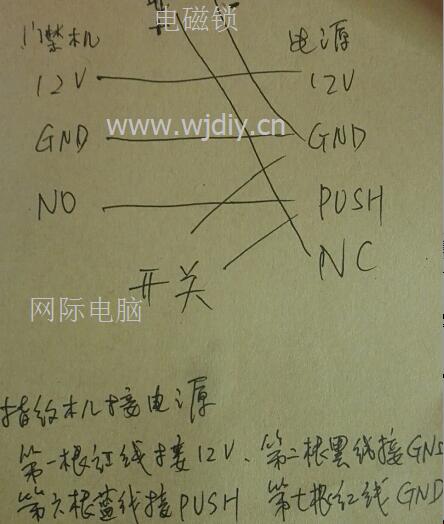 电磁锁
+ -
门禁机 电源
12V 12V
GND GND
www.wjdiy.cn
NO PUSH
NC
开关
网际电脑
指纹机接电源
第一根红线接12V、第二根黑线接GND
第六根蓝线接PUSH 第七根红线GND